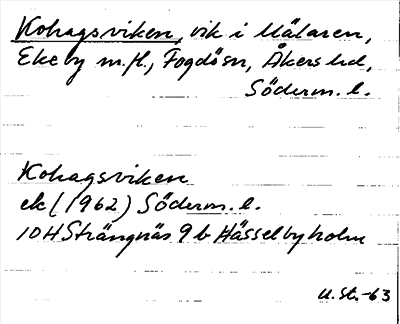 Kohagsviken, vik i Mälaren,
Ekeby m.fl., Fogdön, Åkers hd,
Söderm. l.
Kohagsviken
ek (1962) Söderm. l.
10H Strängnäs 9b Hässelbyholm
U.St.-63